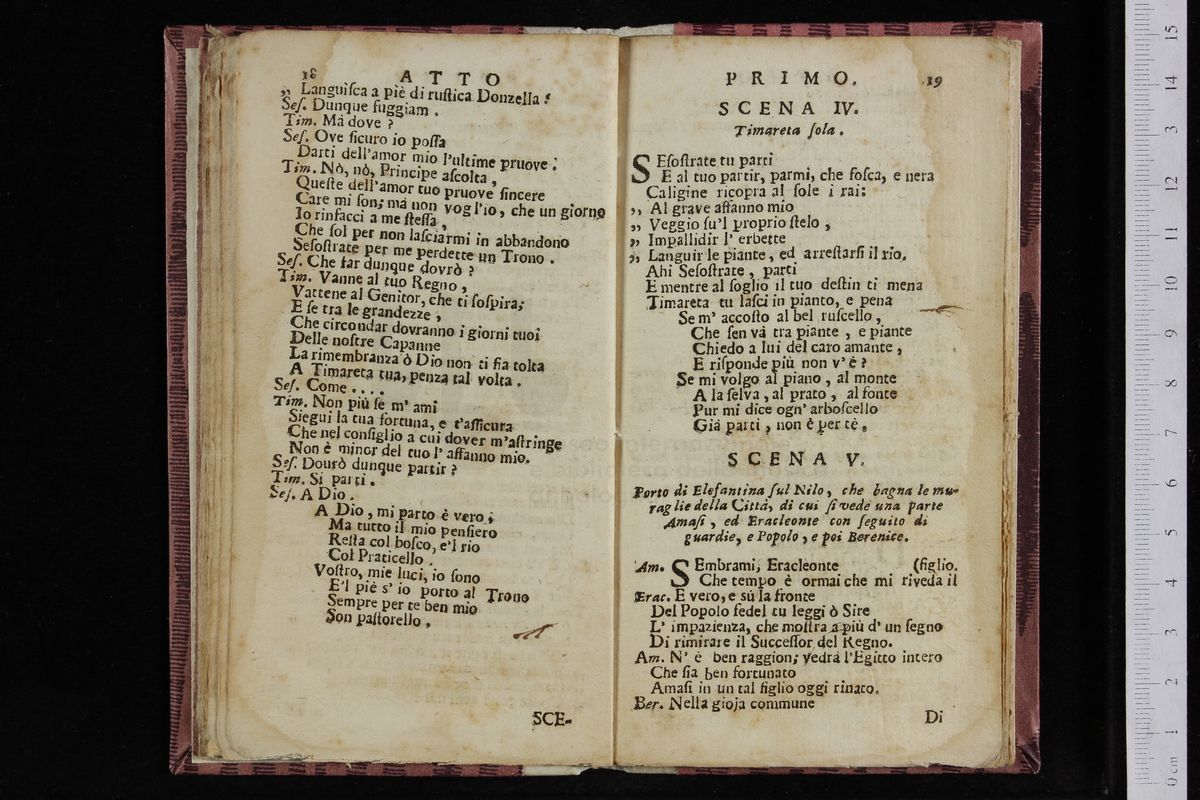 18 ATTO
„ Languiſca a piè di ruſtica Donzella!
Seſ. Dunque fuggiam.
Tim. Mà dove?
Seſ. Ove ſicuro io poſſa
Darti dell'amor mio l'ultime pruove:
Tim. Nò, nò, Principe aſcolta,
Queſte dell'amor tuo pruove ſincere
Care mi ſon; mà non vogl'io, che un giorno
Io rinfacci a me ſteſſa,
Che ſol per non laſciarmi in abbandono
Seſoſtrate per me perdette un Trono.
Seſ. Che far dunque dovrò?
Tim. Vanne al tuo Regno,
Vattene al Genitor, che ti ſoſpira;
E ſe tra le grandezze,
Che circondar dovranno i giorni tuoi
Delle noſtre Capanne
La rimembranza ò Dio non ti ſia tolta
A Timareta tua, penza tal volta.
Seſ. Come....
Tim. Non più ſè m' ami
Siegui la tua fortuna, e t'aſſicura
Che nel conſiglio a cui dover m'aſtringe
Non è minor del tuo l' affanno mio.
Seſ. Dourò dunque partir?
Tim. Si parti.
Seſ. A Dio.
A Dio, mi parto è vero;
Ma tutto il mio penſiero
Reſta col boſco, e'l rio
Col Praticello.
Voſtro, mie luci, io ſono
E'l piè s' io porto al Trono
Sempre per te ben mio
Son paſtorello.
SCE-
PRIMO. 19
SCENA IV.
Timareta ſola.
SEſoſtrate tu parti
E al tuo partir, parmi, che foſca, e nera
Caligine ricopra al ſole i rai:
„ Al grave affanno mio
„ Veggio ſu'l proprio ſtelo,
„ Impallidir l' erbette
„ Languir le piante, ed arreſtarſi il rio.
Ahi Seſoſtrate, parti
E mentre al ſoglio il tuo deſtin ti mena
Timareta tu laſci in pianto, e pena
Se m' accoſto al bel ruſcello,
Che ſen và tra piante, e piante
Chiedo a lui del caro amante,
E riſponde più non v' è?
Se mi volgo al piano, al monte
A la ſelva, al prato, al fonte
Pur mi dice ogn' arboſcello
Già parti, non è per te.
SCENA V.
Porto di Elefantina ſul Nilo, che bagna le mu-
raglie della Città, di cui ſi vede una parte
Amaſi, ed Eracleonte con ſeguito di
guardie, e Popolo, e poi Berenice.
Am. SEmbrami, Eracleonte (figlio.
Che tempo è ormai che mi riveda il
Erac. E vero, e sù la fronte
Del Popolo fedel tu leggi ò Sire
L' impazienza, che moſtra a più d' un ſegno
Di rimirare il Succeſſor del Regno.
Am. N' è ben raggion; vedrà l'Egitto intero
Che ſia ben fortunato
Amaſi in un tal figlio oggi rinato.
Ber. Nella gioja commune
Di
15
14
13
12
11
10
9
8
7
6
5
4
3
2
1
0 cm